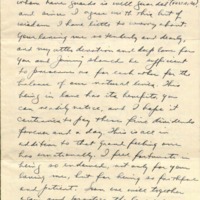 whom have guards is well guarded
and since I agree with this bit of
wisdom I have little to worry about
your loving me so tenderly and dearly,
and my utter devotion and deep love for
you and Jimmy should be sufficient
to preserve us for each other for the
balance of our natural lives. This
being in love has its benefits, you
can readily notice, and I hope it
continues to pay those fine dividends
forever and a day. This is all in
addition to that grand feeling one
has emotionally. I feel fortunate in
being so endowed, not only for your
loving me, but for being so faithful
and patient. Soon we will together
again and